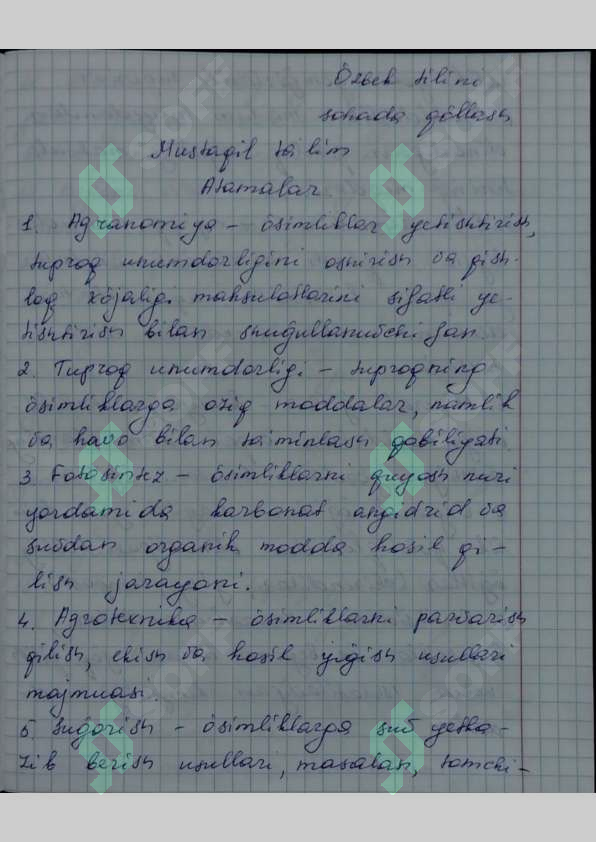 Özbek tilini
sohada qöllash
Mustaqil ta'lim
Atamalar.
1. Agranomiya – ösimliklar yetishtirish,
tuproq unumdorligini oshirish va qish-
loq xöjaligi mahsulotlarini sifatli ye-
tishtirish bilan shug'ullanuvchi fan.
2. Tuproq unumdorligi – tuproqning
ösimliklarga oziq moddalar, namlik
va havo bilan ta'minlash qobiliyati.
3 Fotosintez – ösimliklarni quyosh nuri
yordamida karbonat angidrid va
suvdan organik modda hosil qi-
lish jarayoni.
4. Agrotexnika – ösimliklarni parvarish
qilish, ekish va hosil yig'ish usullari
majmuasi.
5. Sug'orish – ösimliklarga suv yetka-
zib berish usullari, masalan, tomchi-